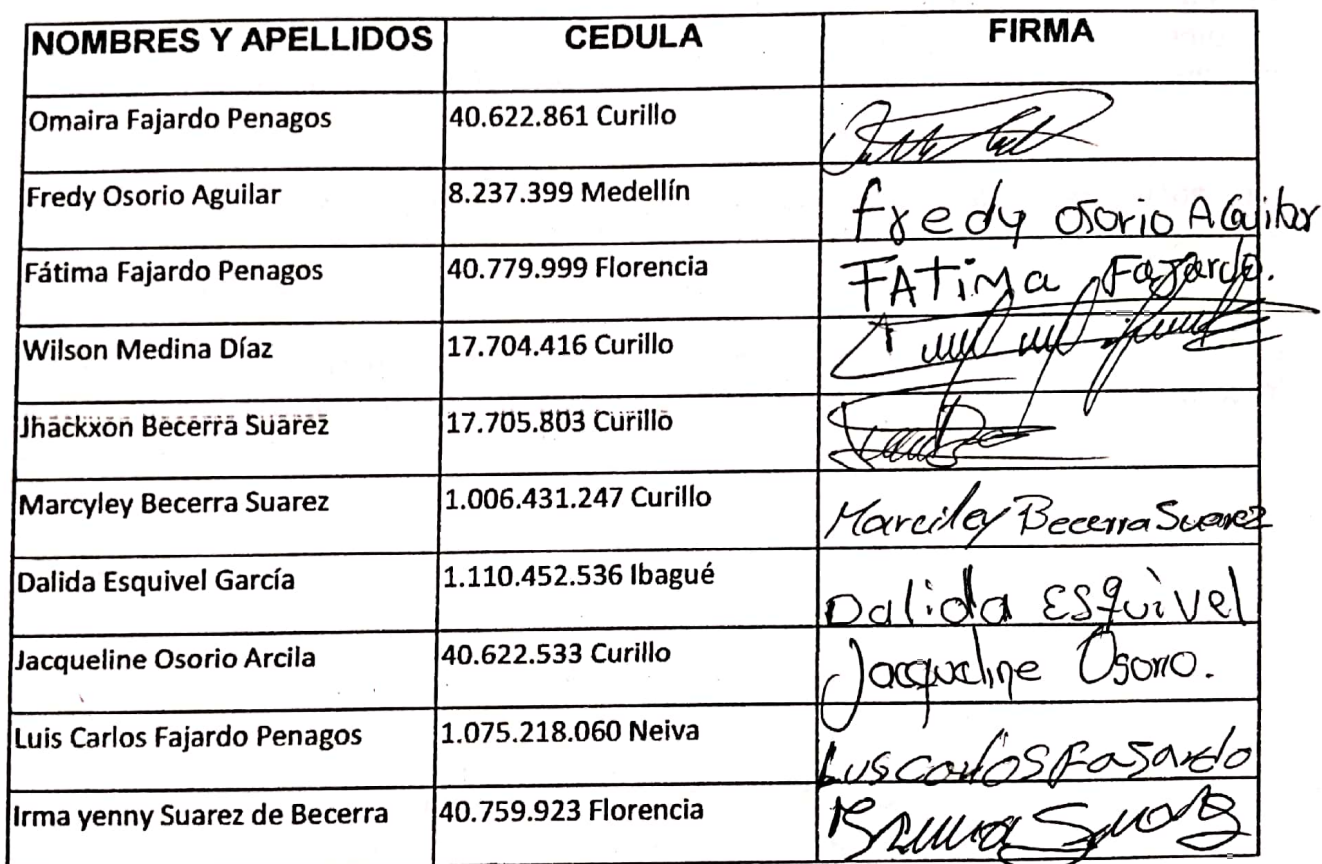 NOMBRES Y APELLIDOS CEDULA FIRMA
Omaira Fajardo Penagos 40.622.861 Curillo
Fredy Osorio Aguilar 8.237.399 Medellín Fredy Osorio Aguilar
Fátima Fajardo Penagos 40.779.999 Florencia FATiMa Fajardo.
Wilson Medina Díaz 17.704.416 Curillo
Jhackxon Becerra Suarez 17.705.803 Curillo
Marcyley Becerra Suarez 1.006.431.247 Curillo Marciley Becerra Suarez
Dalida Esquivel García 1.110.452.536 Ibagué Dalida Esquivel
Jacqueline Osorio Arcila 40.622.533 Curillo Jacqueline Osorio.
Luis Carlos Fajardo Penagos 1.075.218.060 Neiva Luis carlos Fajardo
Irma yenny Suarez de Becerra 40.759.923 Florencia